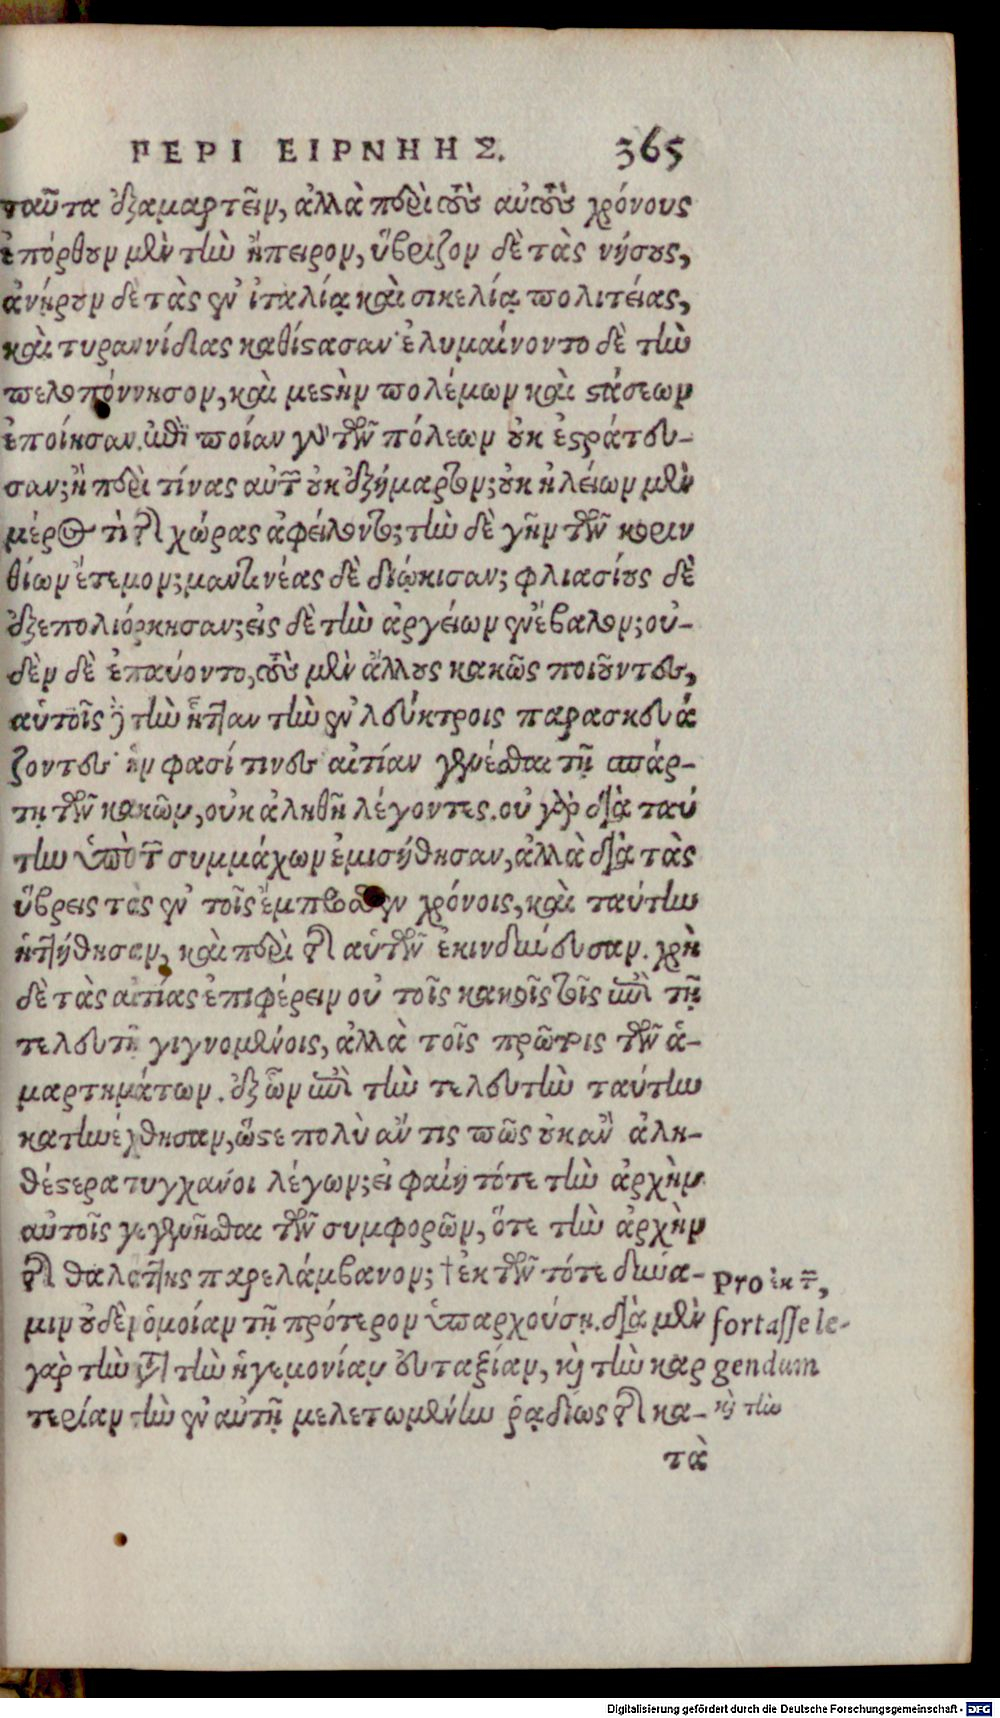 ΠΕΡΙ ΕΙΡΝΗΗΣ. 365
ταῦτα ἐξαμαρτεῖν, ἀλλὰ περὶ τοὺς αὐτοὺς χρόνους
ἐπόρθουν μὲν τὴν ἤπειρον, ὕβριζον δὲ τὰς νήσους,
ἀνῄρουν δὲ τὰς ἐν ἰταλίᾳ καὶ σικελίᾳ πολιτείας,
καὶ τυραννίδας καθίστασαν· ἐλυμαίνοντο δὲ τὴν
πελοπόννησον, καὶ μεστὴν πολέμων καὶ στάσεων
ἐποίησαν. ἐπὶ ποίαν γὰρ τῶν πόλεων οὐκ ἐστράτευ-
σαν; ἢ περὶ τίνας αὐτῶν οὐκ ἐξήμαρτον; οὐκ ἠλείων μὲν
μέρος τὶ τῆς χώρας ἀφείλοντο; τὴν δὲ γῆν τῶν κοριν
θίων ἔτεμον; μαντινέας δὲ διῴκισαν; φλιασίους δὲ
ἐξεπολιόρκησαν; εἰς δὲ τὴν ἀργείων ἐνέβαλον; οὐ-
δὲν δὲ ἐπαύοντο, τοὺς μὲν ἄλλους κακῶς ποιοῦντες,
αὑτοῖς δὲ τὴν ἧτταν τὴν ἐν λεύκτροις παρασκευά
ζοντες· ἥν φασί τινες αἰτίαν γενέσθαι τῇ σπάρ-
τῃ τῶν κακῶν, οὐκ ἀληθῆ λέγοντες. οὐ γὰρ διὰ ταύ
την ὑπὸ τῶν συμμάχων ἐμισήθησαν, ἀλλὰ διὰ τὰς
ὕβρεις τὰς ἐν τοῖς ἔμπροσθεν χρόνοις, καὶ ταύτην
ἡττήθησαν, καὶ περὶ τῆς αὑτῶν ἐκινδύνευσαν. χρὴ
δὲ τὰς αἰτίας ἐπιφέρειν οὐ τοῖς κακοῖς τοῖς ἐπὶ τῇ
τελευτῇ γιγνομένοις, ἀλλὰ τοῖς πρώτοις τῶν ἁ-
μαρτημάτων. ἐξ ὧν ἐπὶ τὴν τελευτὴν ταύτην
κατηνέχθησαν, ὥστε πολὺ ἄν τις πῶς οὐκ ἂν ἀλη-
θέστερα τυγχάνοι λέγων; εἰ φαίη τότε τὴν ἀρχὴν
αὐτοῖς γεγενῆσθαι τῶν συμφορῶν, ὅτε τὴν ἀρχὴν
τῆς θαλάττης παρελάμβανον; †ἐκ τῶν τότε δύνα-
μιν οὐδὲν ὁμοίαν τῇ πρότερον ὑπαρχούσῃ. διὰ μὲν
γὰρ τὴν κατὰ τὴν ἡγεμονίαν εὐταξίαν, καὶ τὴν καρ
τερίαν τὴν ἐν αὐτῇ μελετωμένην ῥᾳδίως τῆς κα-
τὰ
Pro ἐκ τῶν,
fortasse le-
gendum
καὶ τὴν
Digitalisierung gefördert durch die Deutsche Forschungsgemeinschaft - DFG